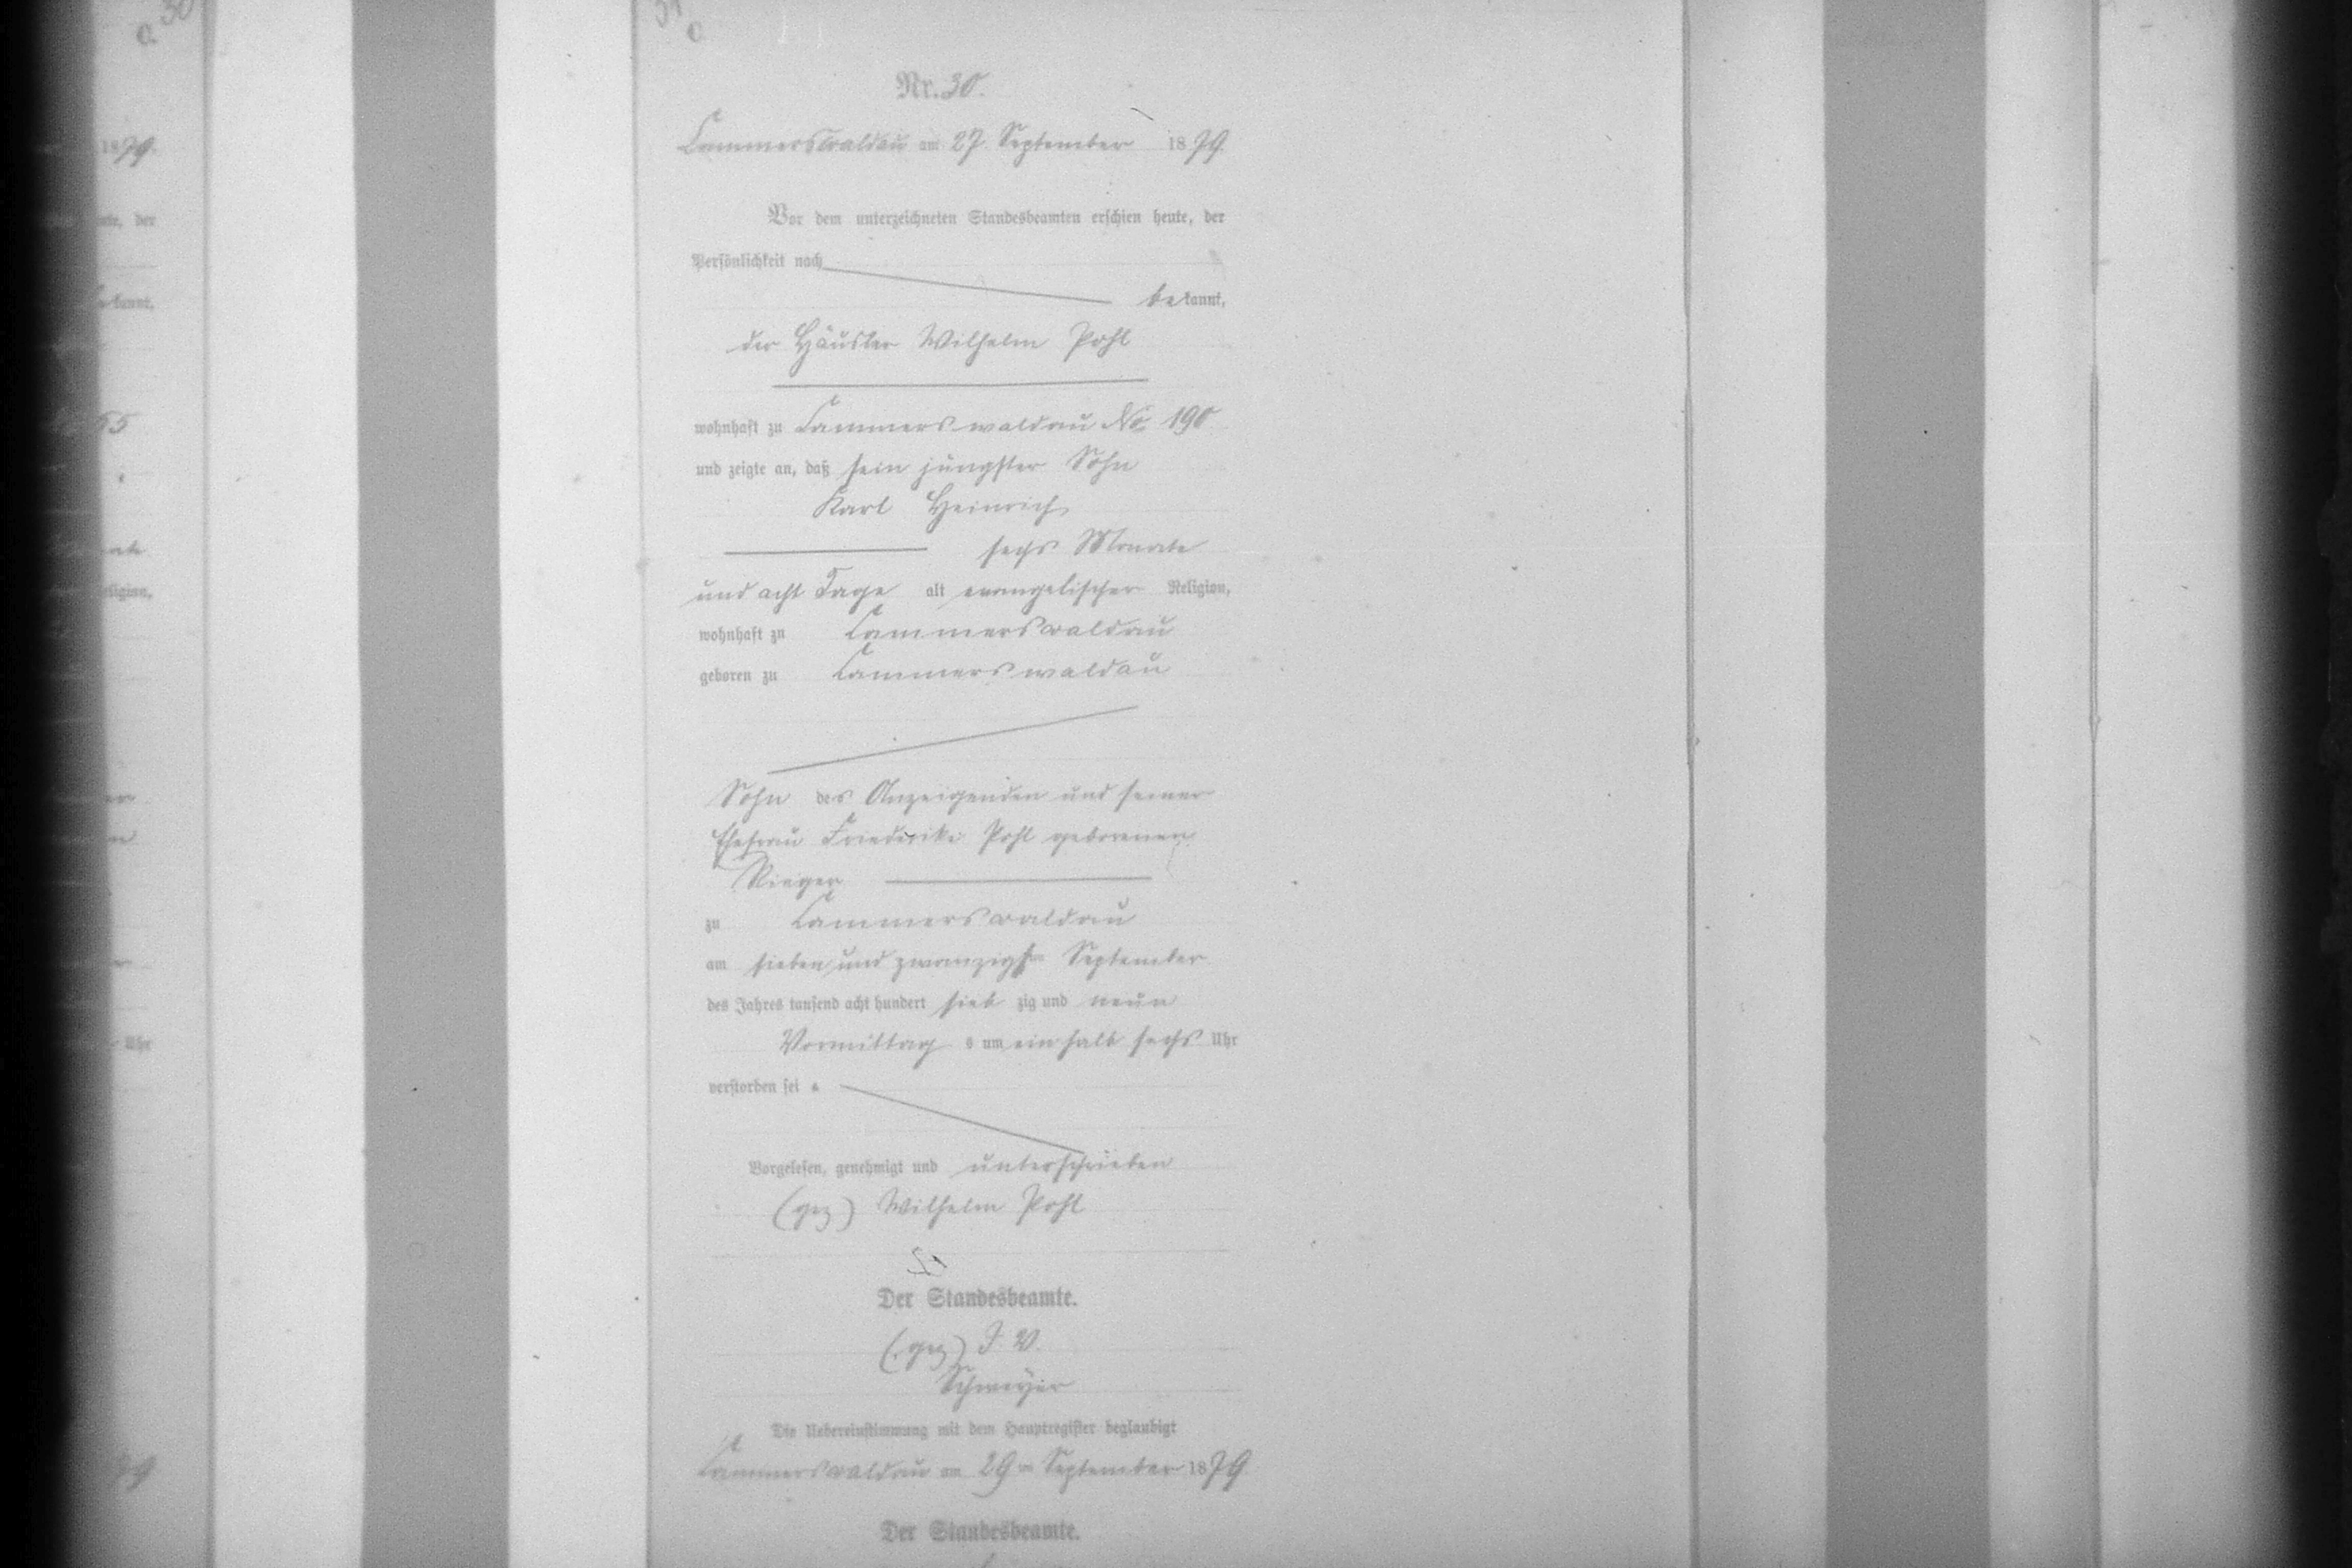 30
c.
31
c
Nr. 30.
Cammerswaldau am 27. September 1879.
Vor dem unterzeichneten Standesbeamten erschien heute, der
Persönlichkeit nach
bekannt,
der Häusler Wilhelm Pohl
wohnhaft zu Cammerswaldau No. 190
und zeigte an, daß sein jüngster Sohn
Karl Heinrich
sechs Monate
und acht Tage alt evangelischer Religion,
wohnhaft zu Cammerswaldau
geboren zu Cammerswaldau
Sohn des Anzeigenden und seiner
Ehefrau Friederike Pohl geborenen
Rieger
zu Cammerswaldau
am sieben und zwanzigsten September
des Jahres tausend acht hundert siebzig und neun
Vormittags um ein halb sechs Uhr
verstorben sei.
Vorgelesen, genehmigt und unterschrieben
(gez) Wilhelm Pohl
Der Standesbeamte.
(gez) I. V.
Die Uebereinstimmung mit dem Hauptregister beglaubigt
Cammerswaldau am 29ten September 1879
Der Standesbeamte.
1879.
der
kannt,
65
Religion,
Uhr
79